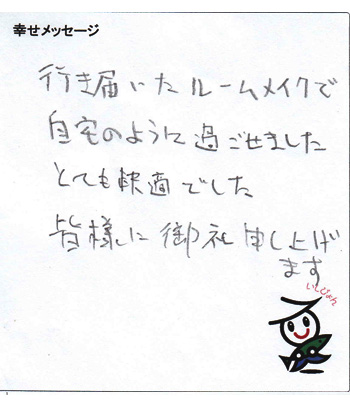 幸せメッセージ
行き届いたルームメイクで
自宅のように過ごせました
とても快適でした
皆様に御礼申し上げ
ます